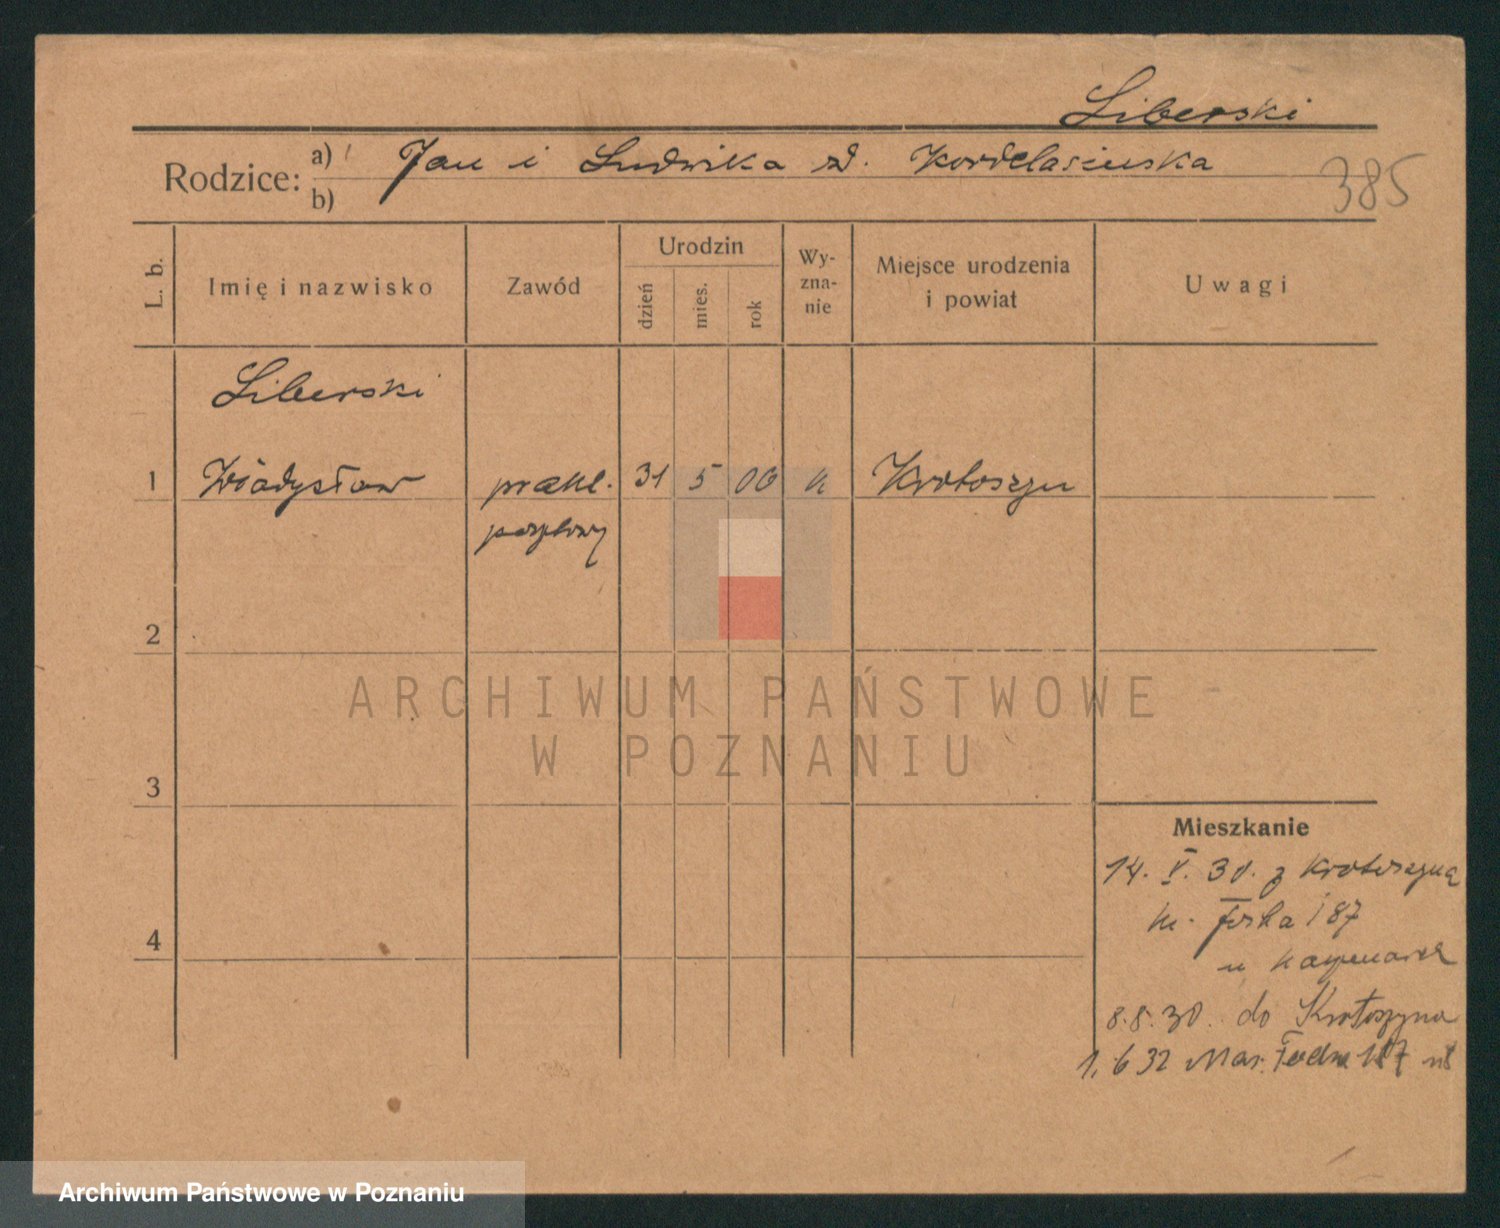 Liberski
Rodzice: a) Jan i Ludwika zd. Kordelasińska
b)
385
L. b.
Imię i nazwisko
Zawód
Urodzin
dzień
mies.
rok
Wy-
zna-
nie
Miejsce urodzenia
i powiat
Uwagi
Liberski
1 Władysław prakt. 31 5 06 k Krotoszyn
pocztowy
2
ARCHIWUM PAŃSTWOWE
W POZNANIU
3
Mieszkanie
14. V. 30. z Krotoszyna
m. Focha 187
u
4
8.8.30. do Krotoszyna
1.6 32 Mar. Focha 187
Archiwum Państwowe w Poznaniu